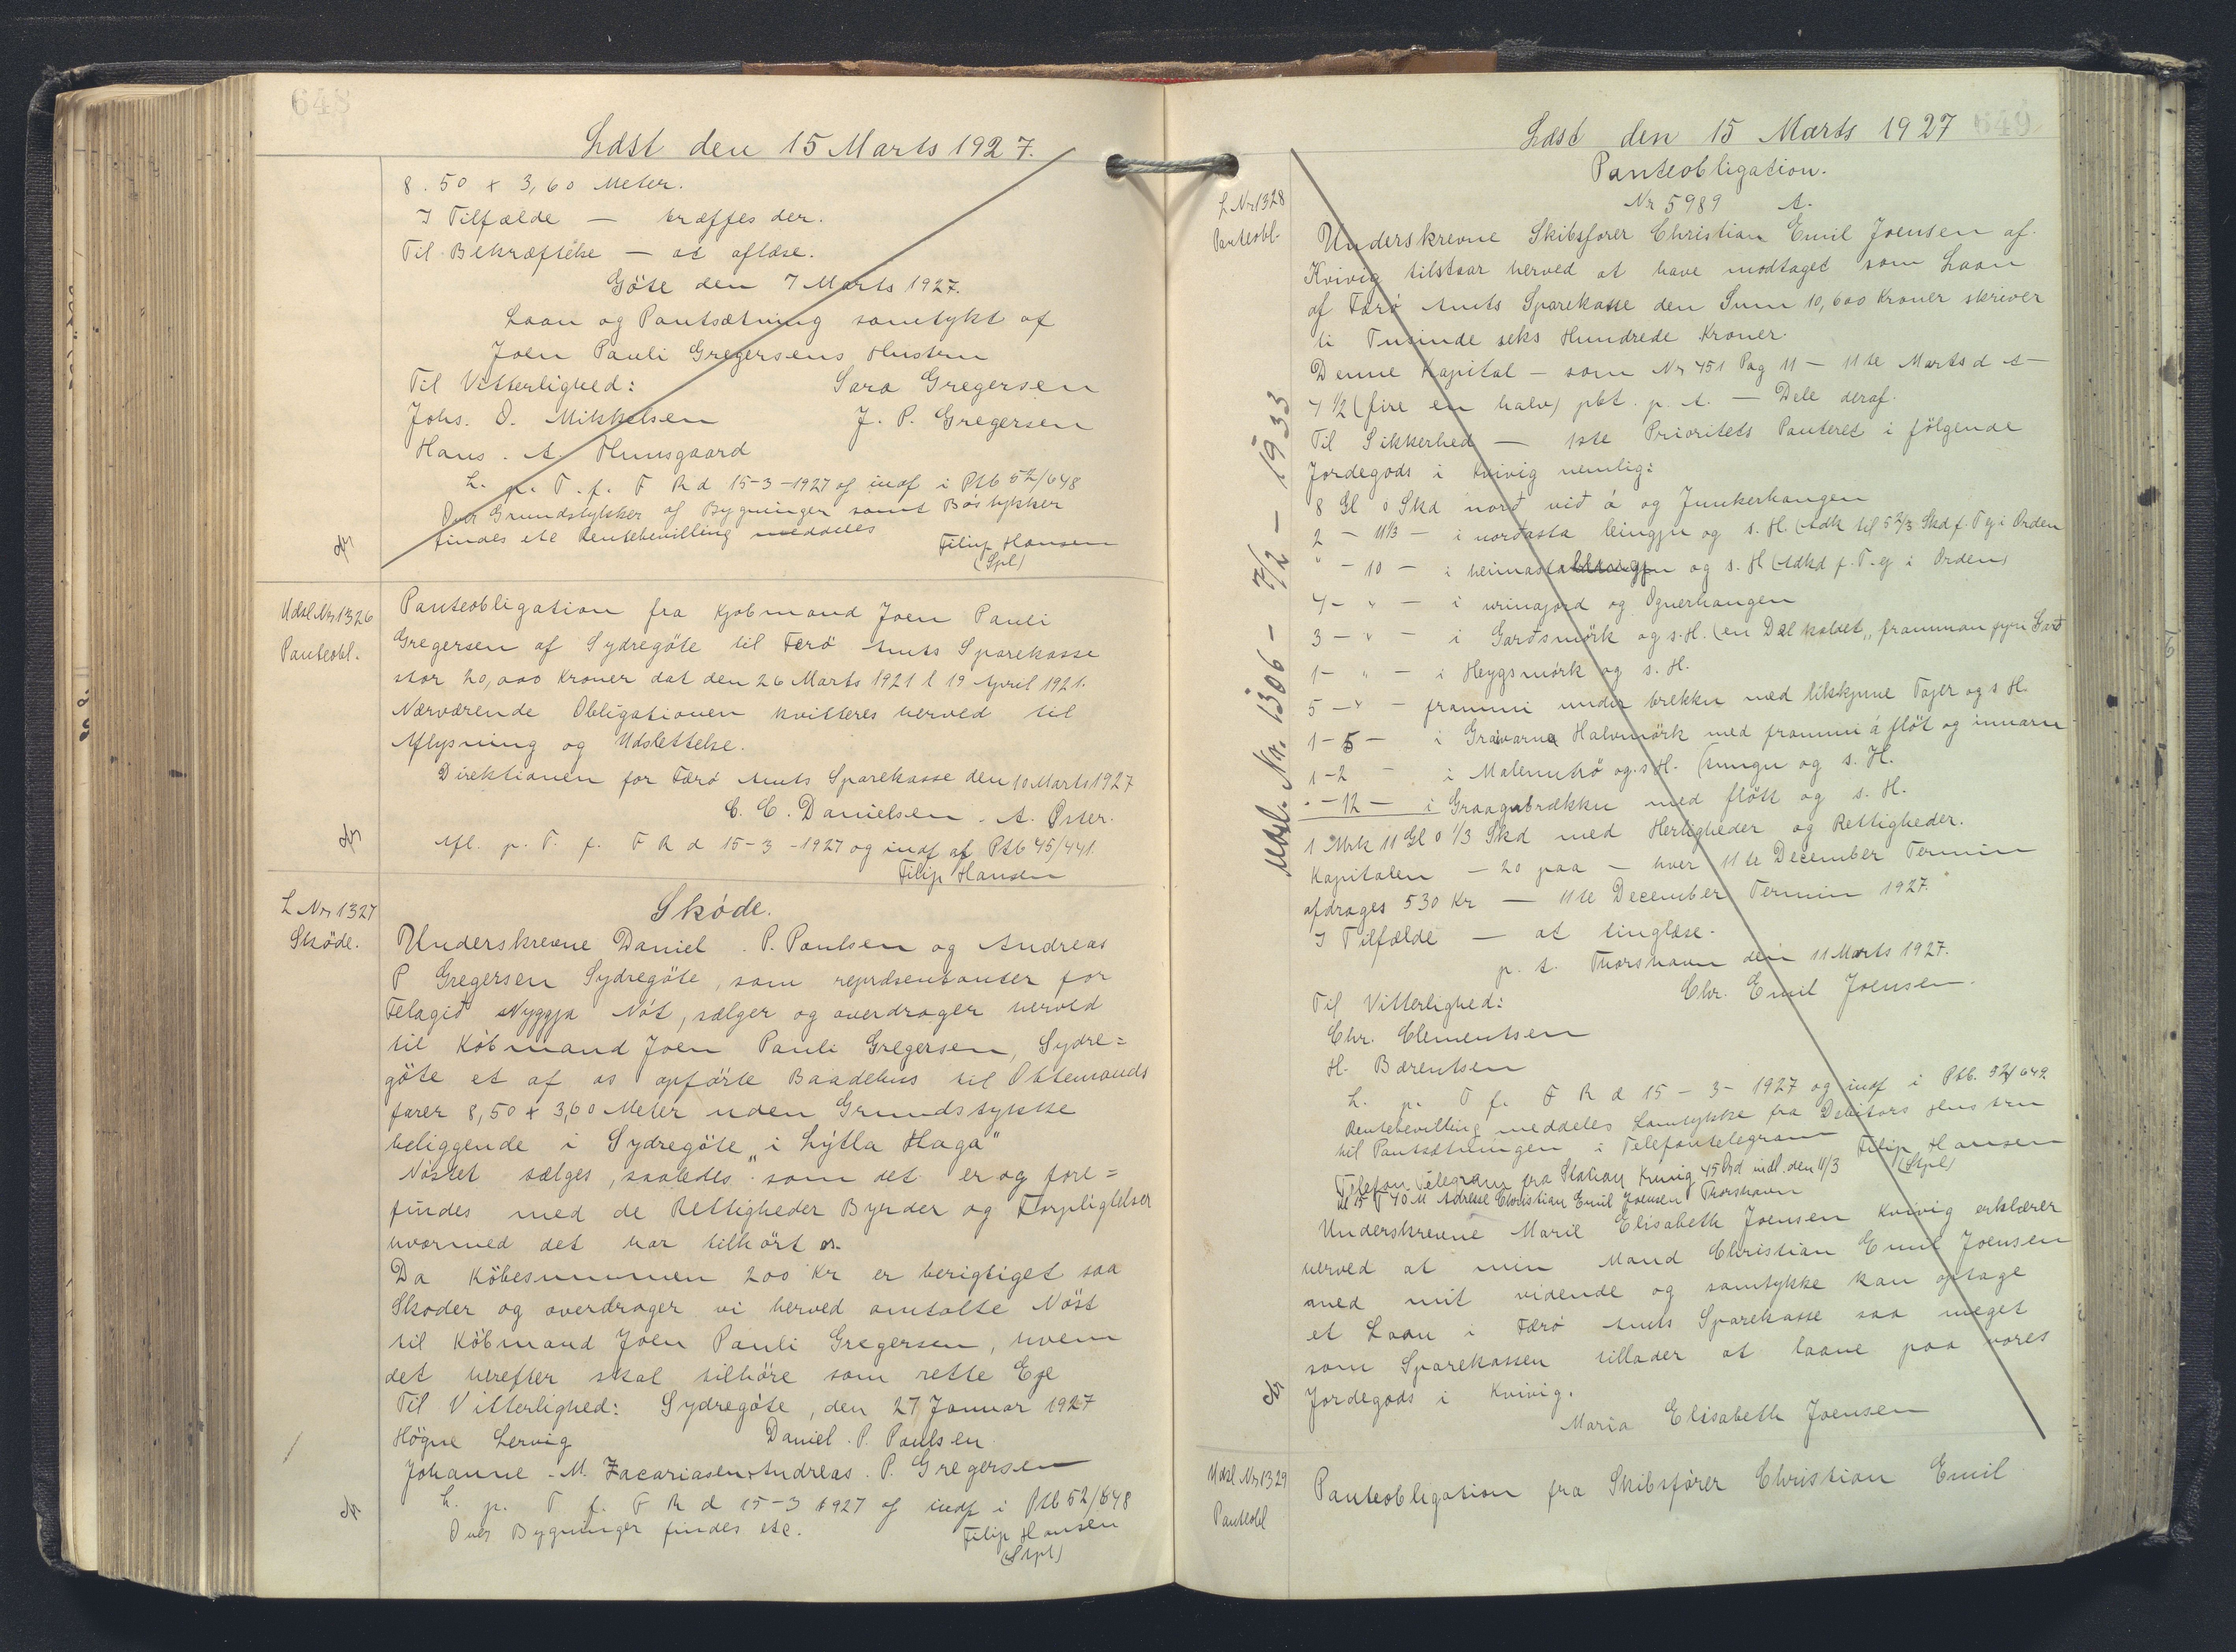 648
Læst den 15 Marts 1927.
8.50 x 3,60 Meter.
I Tilfælde — træffes der.
Til Bekræftelse — at aflæse.
Göte den 7 Marts 1927.
Laan og Pantsætning samtykt af
Joen Pauli Gregersens Hustru
Til Vitterlighed: Sara Gregersen
Johs. O. Mikkelsen J. P. Gregersen
Hans. A. Hunsgaard
L. p. T. f. F R d 15-3-1927 og indf i Ptb 52/648
Over Grundstykker og Bygninger samt Böstykker
findes ete Rentebevilling meddeles
Filip Hansen
(Spl)
Udsl. Nr 1326
Panteobl.
Panteobligation fra Kjøbmand Joen Pauli
Gregersen af Sydregöte til Færö Amts Sparekasse
stor 20,000 Kroner dat den 26 Marts 1921 l 19 April 1921.
Nærværende Obligationen kvitteres herved til
Aflysning og Udslettelse.
Direktionen for Færö Amts Sparekasse den 10 Marts 1927
C. C. Danielsen. A. Öster.
Afl. p. T. f. F R d 15-3-1927 og indf af Ptb 45/441.
Filip Hansen
L Nr 1327
Sköde.
Sköde.
Underskrevne Daniel . P. Poulsen og Andreas
P Gregersen Sydregöte, som repræsentanter for
Felagið Nyggja Nót, sælger og overdrager herved
til Köbmand Joen Pauli Gregersen, Sydre=
göte et af os opförte Baadehus til Ottemands
farer 8,50 x 3,60 Meter uden Grundstykke
beliggende i Sydregöte „i Lýtla Haga"
Nöstet sælges, saaledes som det er og fore=
findes med de Rettigheder Byrder og Forpligtelser
hvormed det har tilhört os.
Da Köbesummen 200 Kr er berigtiget saa
Skøder og overdrager vi herved omtalte Nöst
til Köbmand Joen Pauli Gregersen, hvem
det herefter skal tilhöre som rette Eje
Til Vitterlighed: Sydregöte, den 27 Januar 1927
Högne Lervig Daniel . P. Poulsen
Johanne . M. Zacariasen. Andreas . P. Gregersen
L. p. T f. F R d 15-3 1927 og indf i Ptb 52/648
Over Bygninger findes ete.
Filip Hansen
(Stpl)
649
Læst den 15 Marts 1927
Panteobligation.
L Nr 1328
Panteobl.
Nr 5989 A.
Underskrevne Skibsfører Christian Emil Joensen af
Kvivig tilstaar herved at have modtaget som Laan
af Færö Amts Sparekasse den Sum 10,600 Kroner skriver
ti Tusinde seks Hundrede Kroner.
Denne Kapital — som Nr 451 Pag 11 — 11te Marts d A —
4 1/2 (fire en halv) pbt. p. A. — Dele deraf.
Til Sikkerhed — 1ste Prioritets Panteret i fölgende
Jordegods i Kvivig nemlig:
8 Gl 0 Skd norð við á og Junkerhangen
2 — 11 1/3 — i norðasta leingju og s. H. (Adk til 5 2/3 Skd f. T ej i Orden
" — 10 — i heimasta og s. H (Adkd f. T. ej i Orden)
4 — " — i urinajord og Ognerhangen
3 — " — i Garðsmörk og s. H. (en Del kaldet „framman fyri Garð
1 — " — i Heygsmörk og s. H.
5 — " — frammi under brekku med tilskjune Tajer og s H.
1 — 5 — i Gravarna Halvmörk med frammi á flöt og innaru
1 — 2 — i Malenutrö og s H. (tungu og s. H.
" — 12 — i Graagubrækku med flött og s. H.
1 Mrk 11 Gl 0 1/3 Skd med Herligheder og Rettigheder.
Kapitalen — 20 paa — hver 11te December Termin
afdrages 530 Kr — 11te December Termin 1927.
I Tilfælde — at tinglæse.
p. t. Thorshavn den 11 Marts 1927.
Til Vitterlighed: Chr. Emil Joensen.
Chr. Clementsen
H. Bærentsen
L. p. T f. F R d 15 - 3 - 1927 og indf i Ptb. 52/649
Rentebevilling meddeles Samtykke fra Debitors Hustru
til Pantsætningen i Telefontelegram Filip Hansen
(Stpl)
Telefon Telegram fra Station Kvivig 45 Ord indl. den 11/3
Kl 15 T 40 M Adresse Christian Emil Joensen Thorshavn
Underskrevne Marie Elisabeth Joensen Kvivig erklærer
herved at min Mand Christian Emil Joensen
med mit vidende og samtykke kan optage
et Laan i Færö Amts Sparekasse saa meget
som Sparekassen tillader at laane paa vores
Jordegods i Kvivig.
Maria Elisabeth Joensen
Udsl. Nr. 1306 - 7/2 - 1933
Udsl Nr 1329
Panteobl
Panteobligation fra Skibsfører Christian Emil